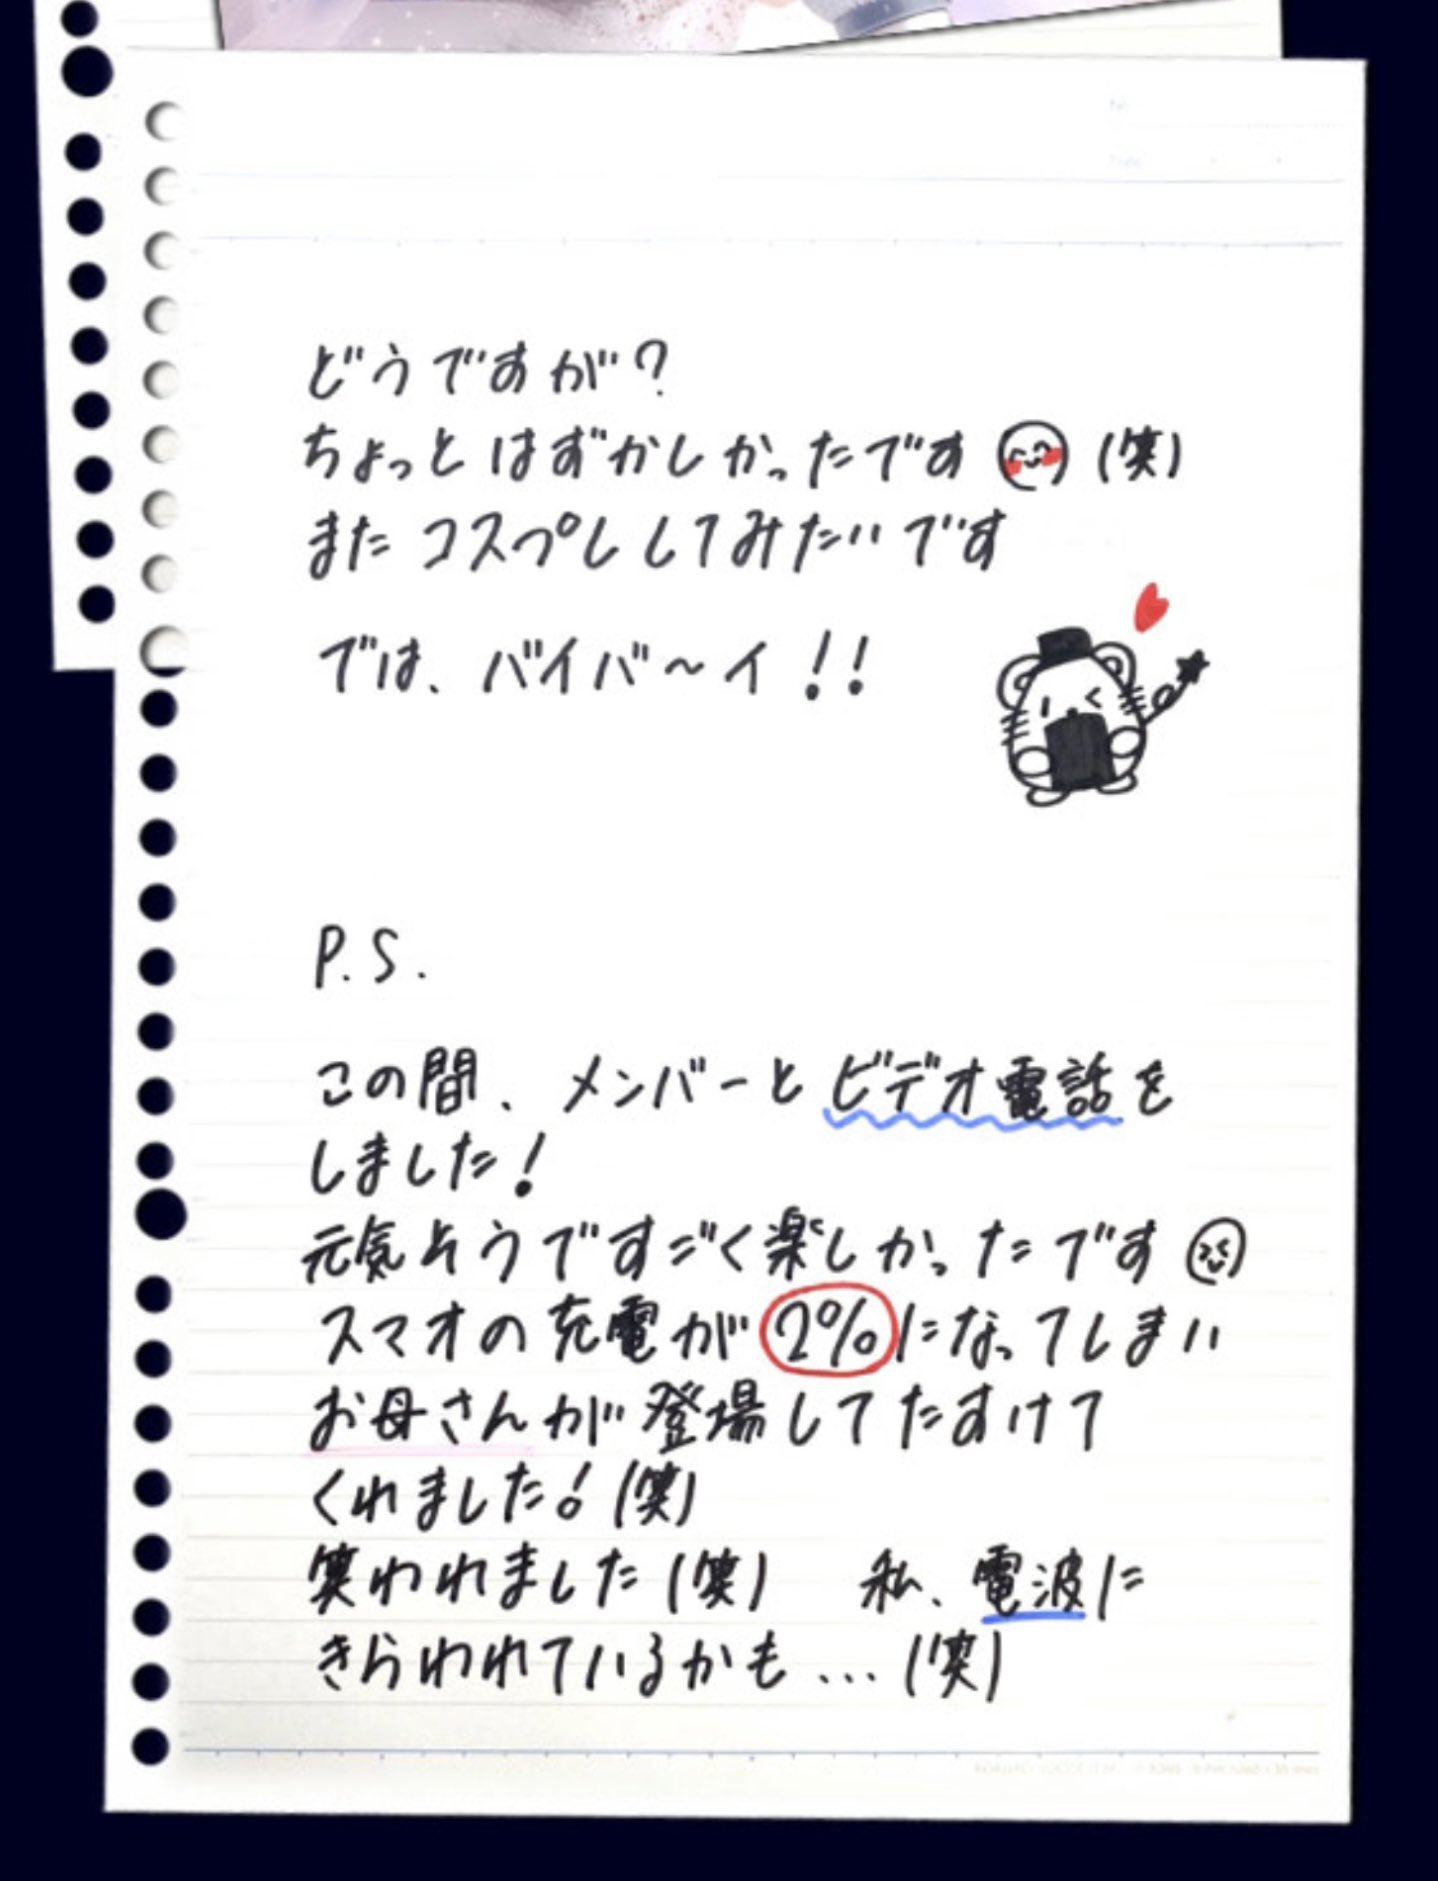 どうですが？
ちょっとはずかしかったです (笑)
またコスプレしてみたいです
では、バイバ〜イ!!
P.S.
この間、メンバーとビデオ電話を
しました!
元気そうですごく楽しかったです
スマオの充電が2%になってしまい
お母さんが登場してたすけて
くれました!(笑)
笑われました(笑) 私、電波に
きらわれているかも...(笑)